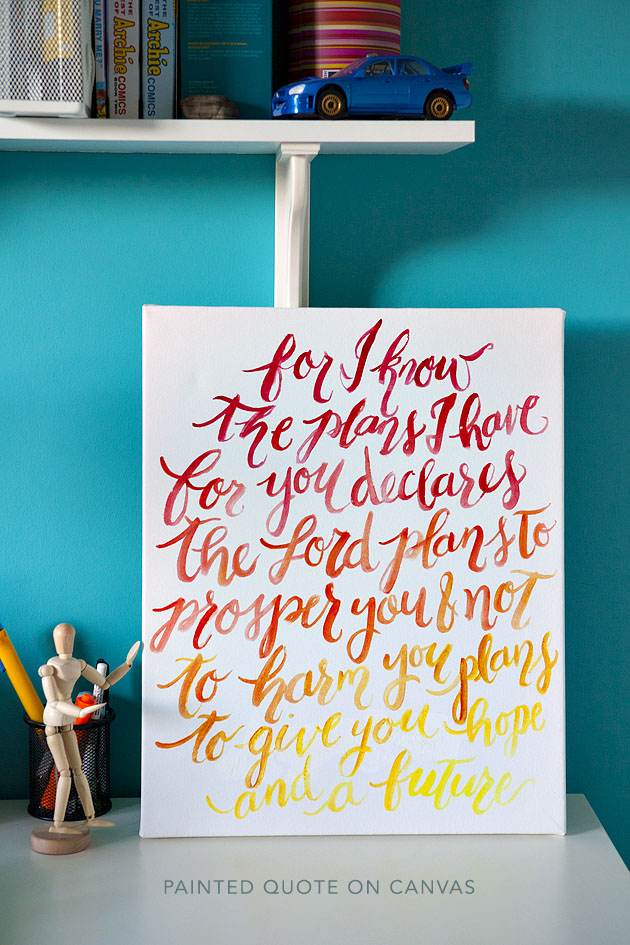 HARRY MET
THE
BEST OF
Archie
COMICS
THE
BEST OF
Archie
COMICS
for I know
the plans I have
for you declares
the Lord plans to
prosper you & not
to harm you plans
to give you hope
and a future
PAINTED QUOTE ON CANVAS